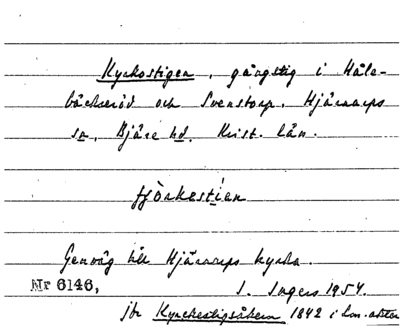 Kyrkostigen, gångstig i Måle-
bäcksröd och Svenstorp, Hjärnarps
sn, Bjäre hd. Krist. län.
Genväg till Hjärnarps kyrka.
Nr 6146, I. Ingers 1954.
jfr Kyrckestigsåkern 1842 i Lm.akten